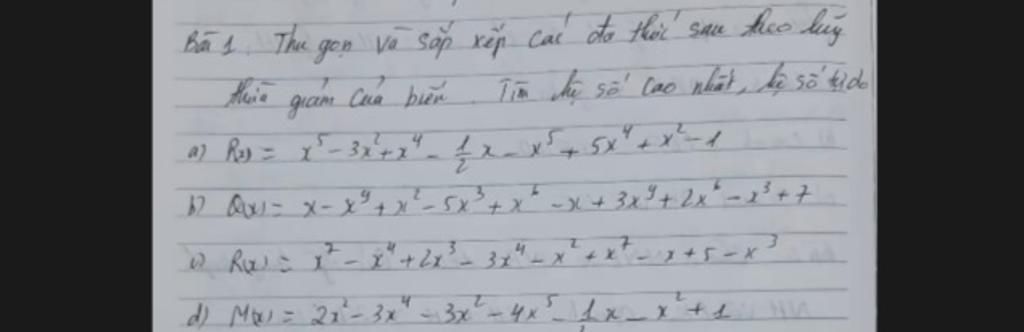 Bài 1. Thu gọn và sắp xếp các đa thức sau theo lũy
thừa giảm của biến. Tìm hệ số cao nhất, hệ số tự do
a) P(x) = x⁵ - 3x² + x⁴ - 1/2 x - x⁵ + 5x⁴ + x² - 1
b) Q(x) = x - x⁹ + x² - 5x³ + x⁶ - x + 3x⁹ + 2x⁶ - x³ + 7
c) R(x) = x² - x⁴ + 2x³ - 3x⁴ - x² + x⁷ - x + 5 - x³
d) M(x) = 2x² - 3x⁴ - 3x² - 4x⁵ - 1 x - x² + 1